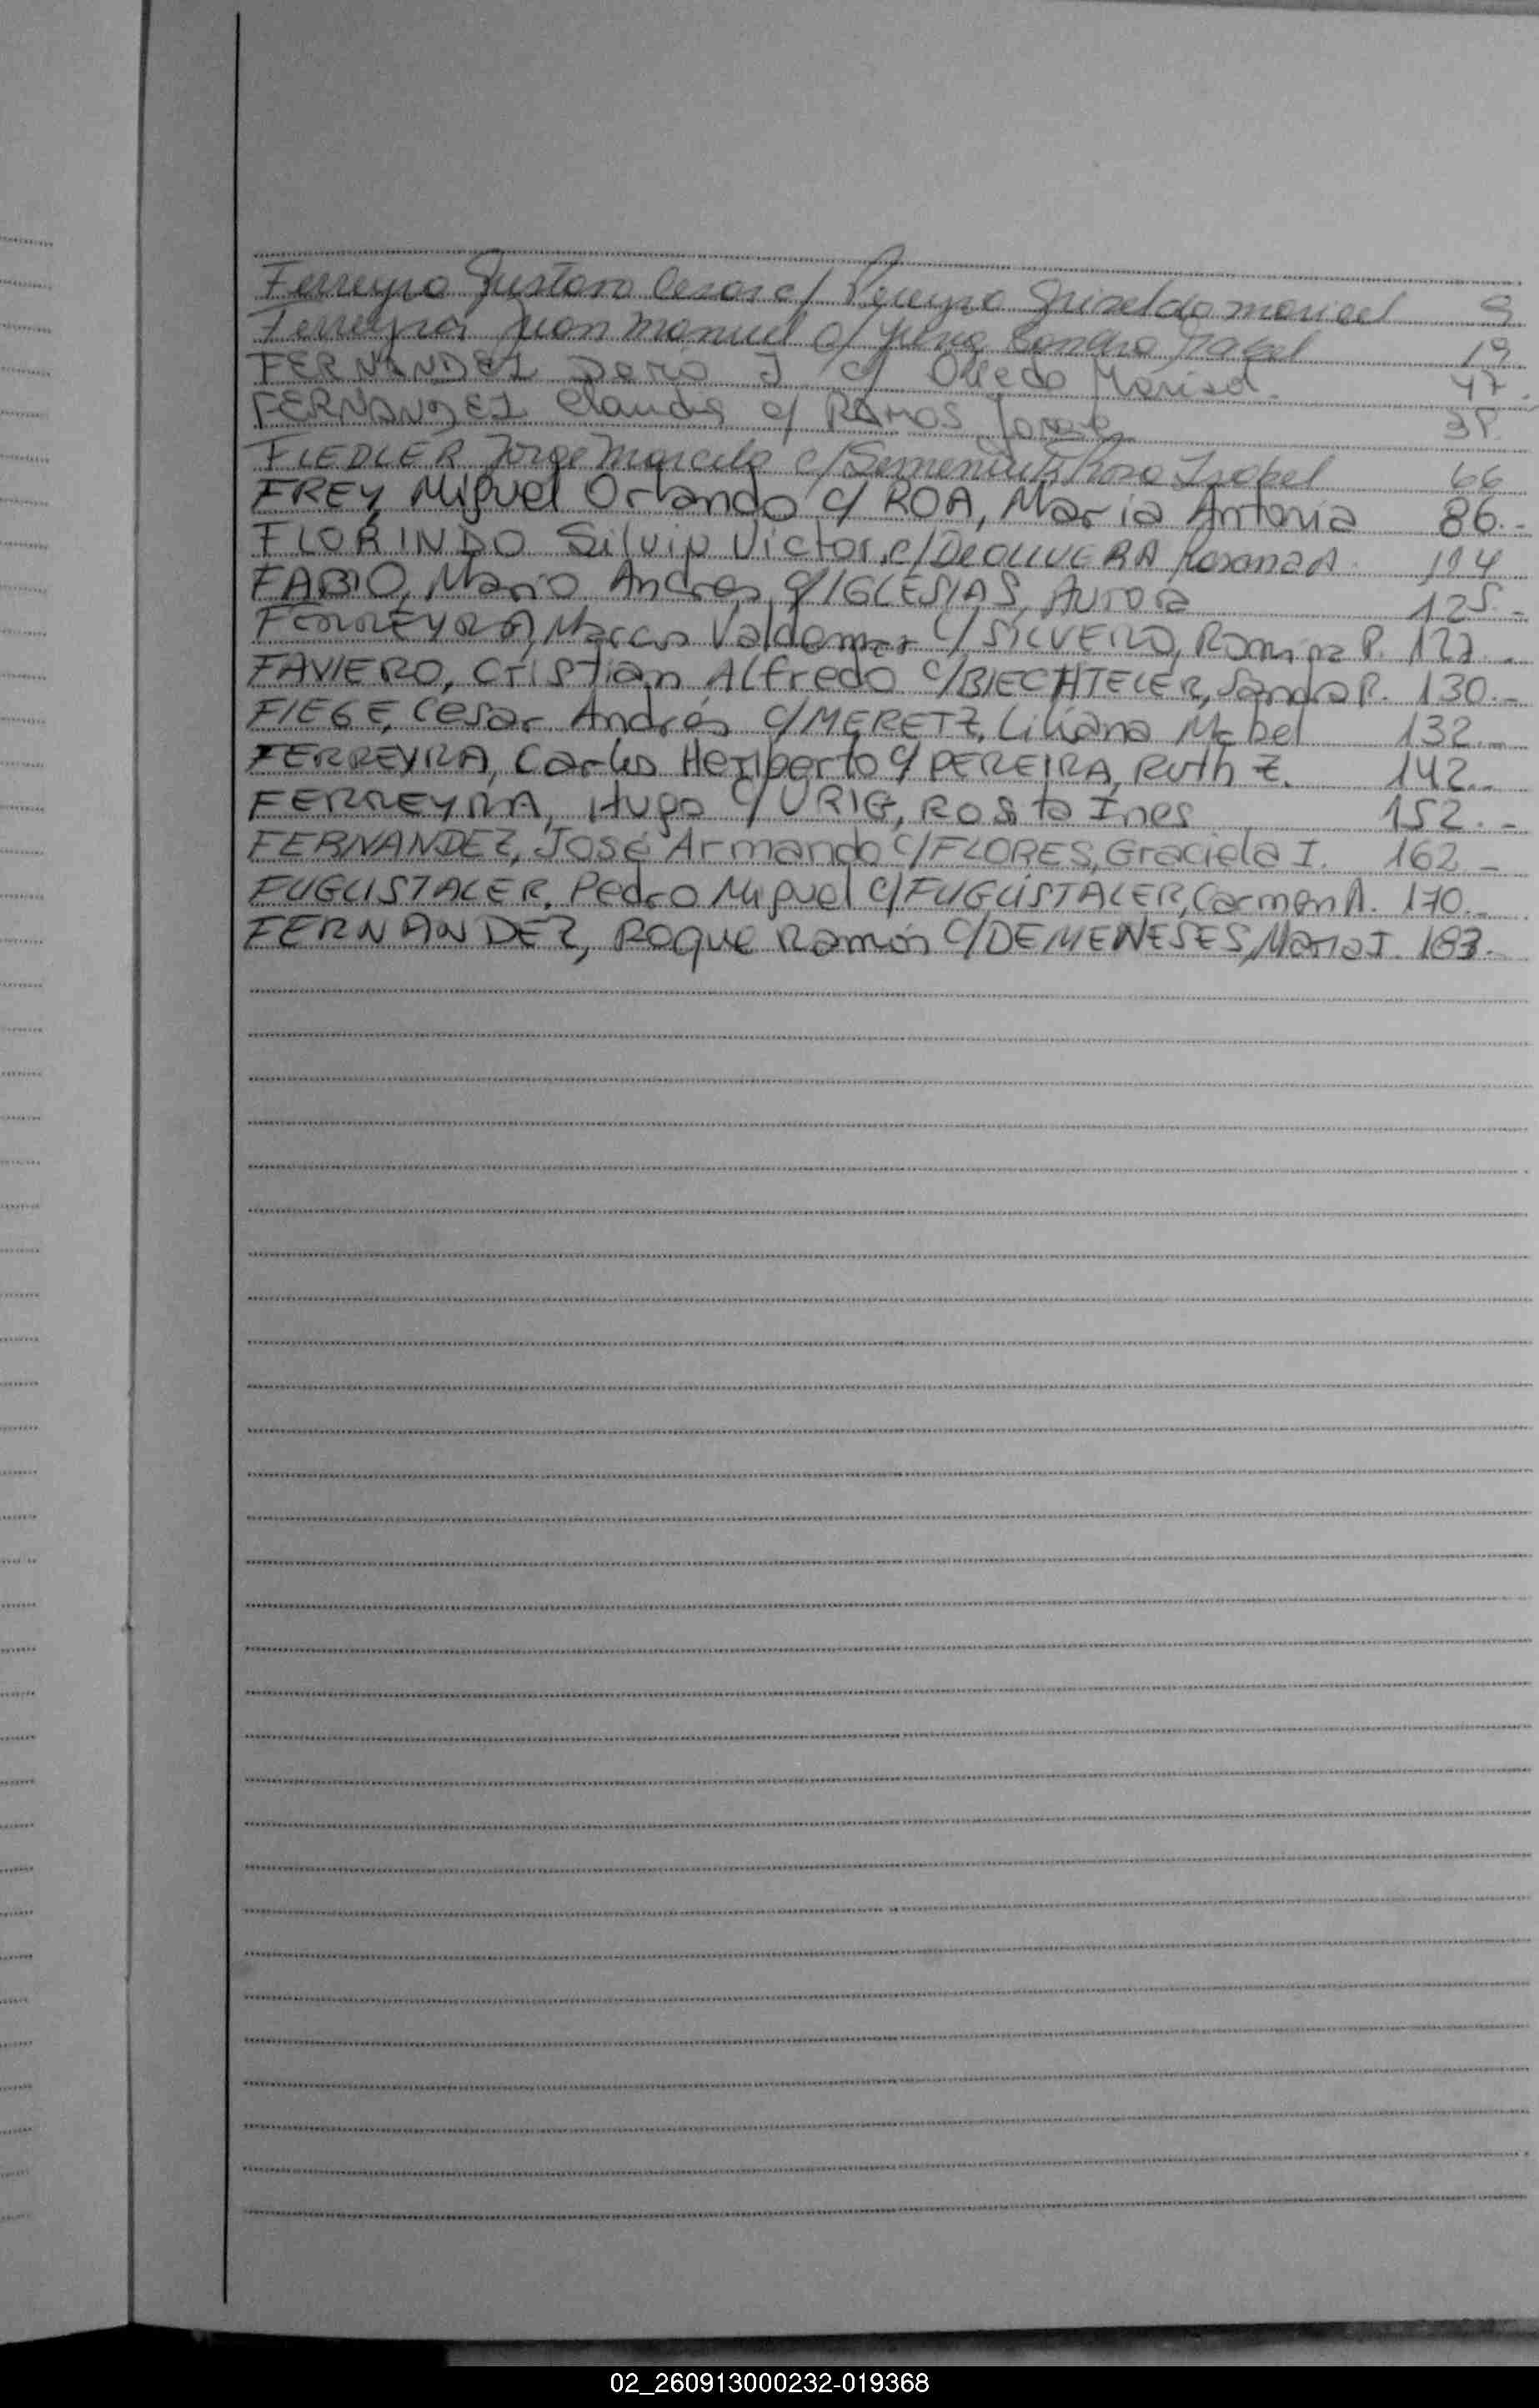 Ferreyra Gustavo Cesar c/ Pereyra Griselda Maricel 9
Ferreyra Juan Manuel c/ Sandra Isabel 19
FERNANDEZ Dario J c/ Olledo Marisol. 47.
FERNANDEZ Claudia c/ RAMOS Jorge
FIEDLER Jorge Marcelo c/ Semeniuk Rosa Isabel 66
FREY, Miguel Orlando c/ ROA, Maria Antonia 86.-
FLORINDO Silvio Victor c/ De OLIVERA Rosana A. 114
FABIO, Mario Andres c/ IGLESIAS, Aurora 125.-
FERREYRA, Marcos Valdemar c/ SILVEIRA, Romina P. 127.-
FAVIERO, Cristian Alfredo c/ BIECHTELER, Sandra R. 130.-
FIEGE, Cesar Andrés c/ MERETZ, Liliana Mabel 132.-
FERREYRA, Carlos Heriberto c/ PEREIRA, Ruth Z. 142.-
FERREYRA, Hugo c/ URIG, Rosita Ines 152.-
FERNANDEZ, José Armando c/ FLORES, Graciela I. 162-
FUGLISTALER, Pedro Miguel c/ FUGLISTALER, Carmen A. 170.-
FERNANDEZ, Roque Ramón c/ DEMENESES, Maria I. 183.-
02_260913000232-019368